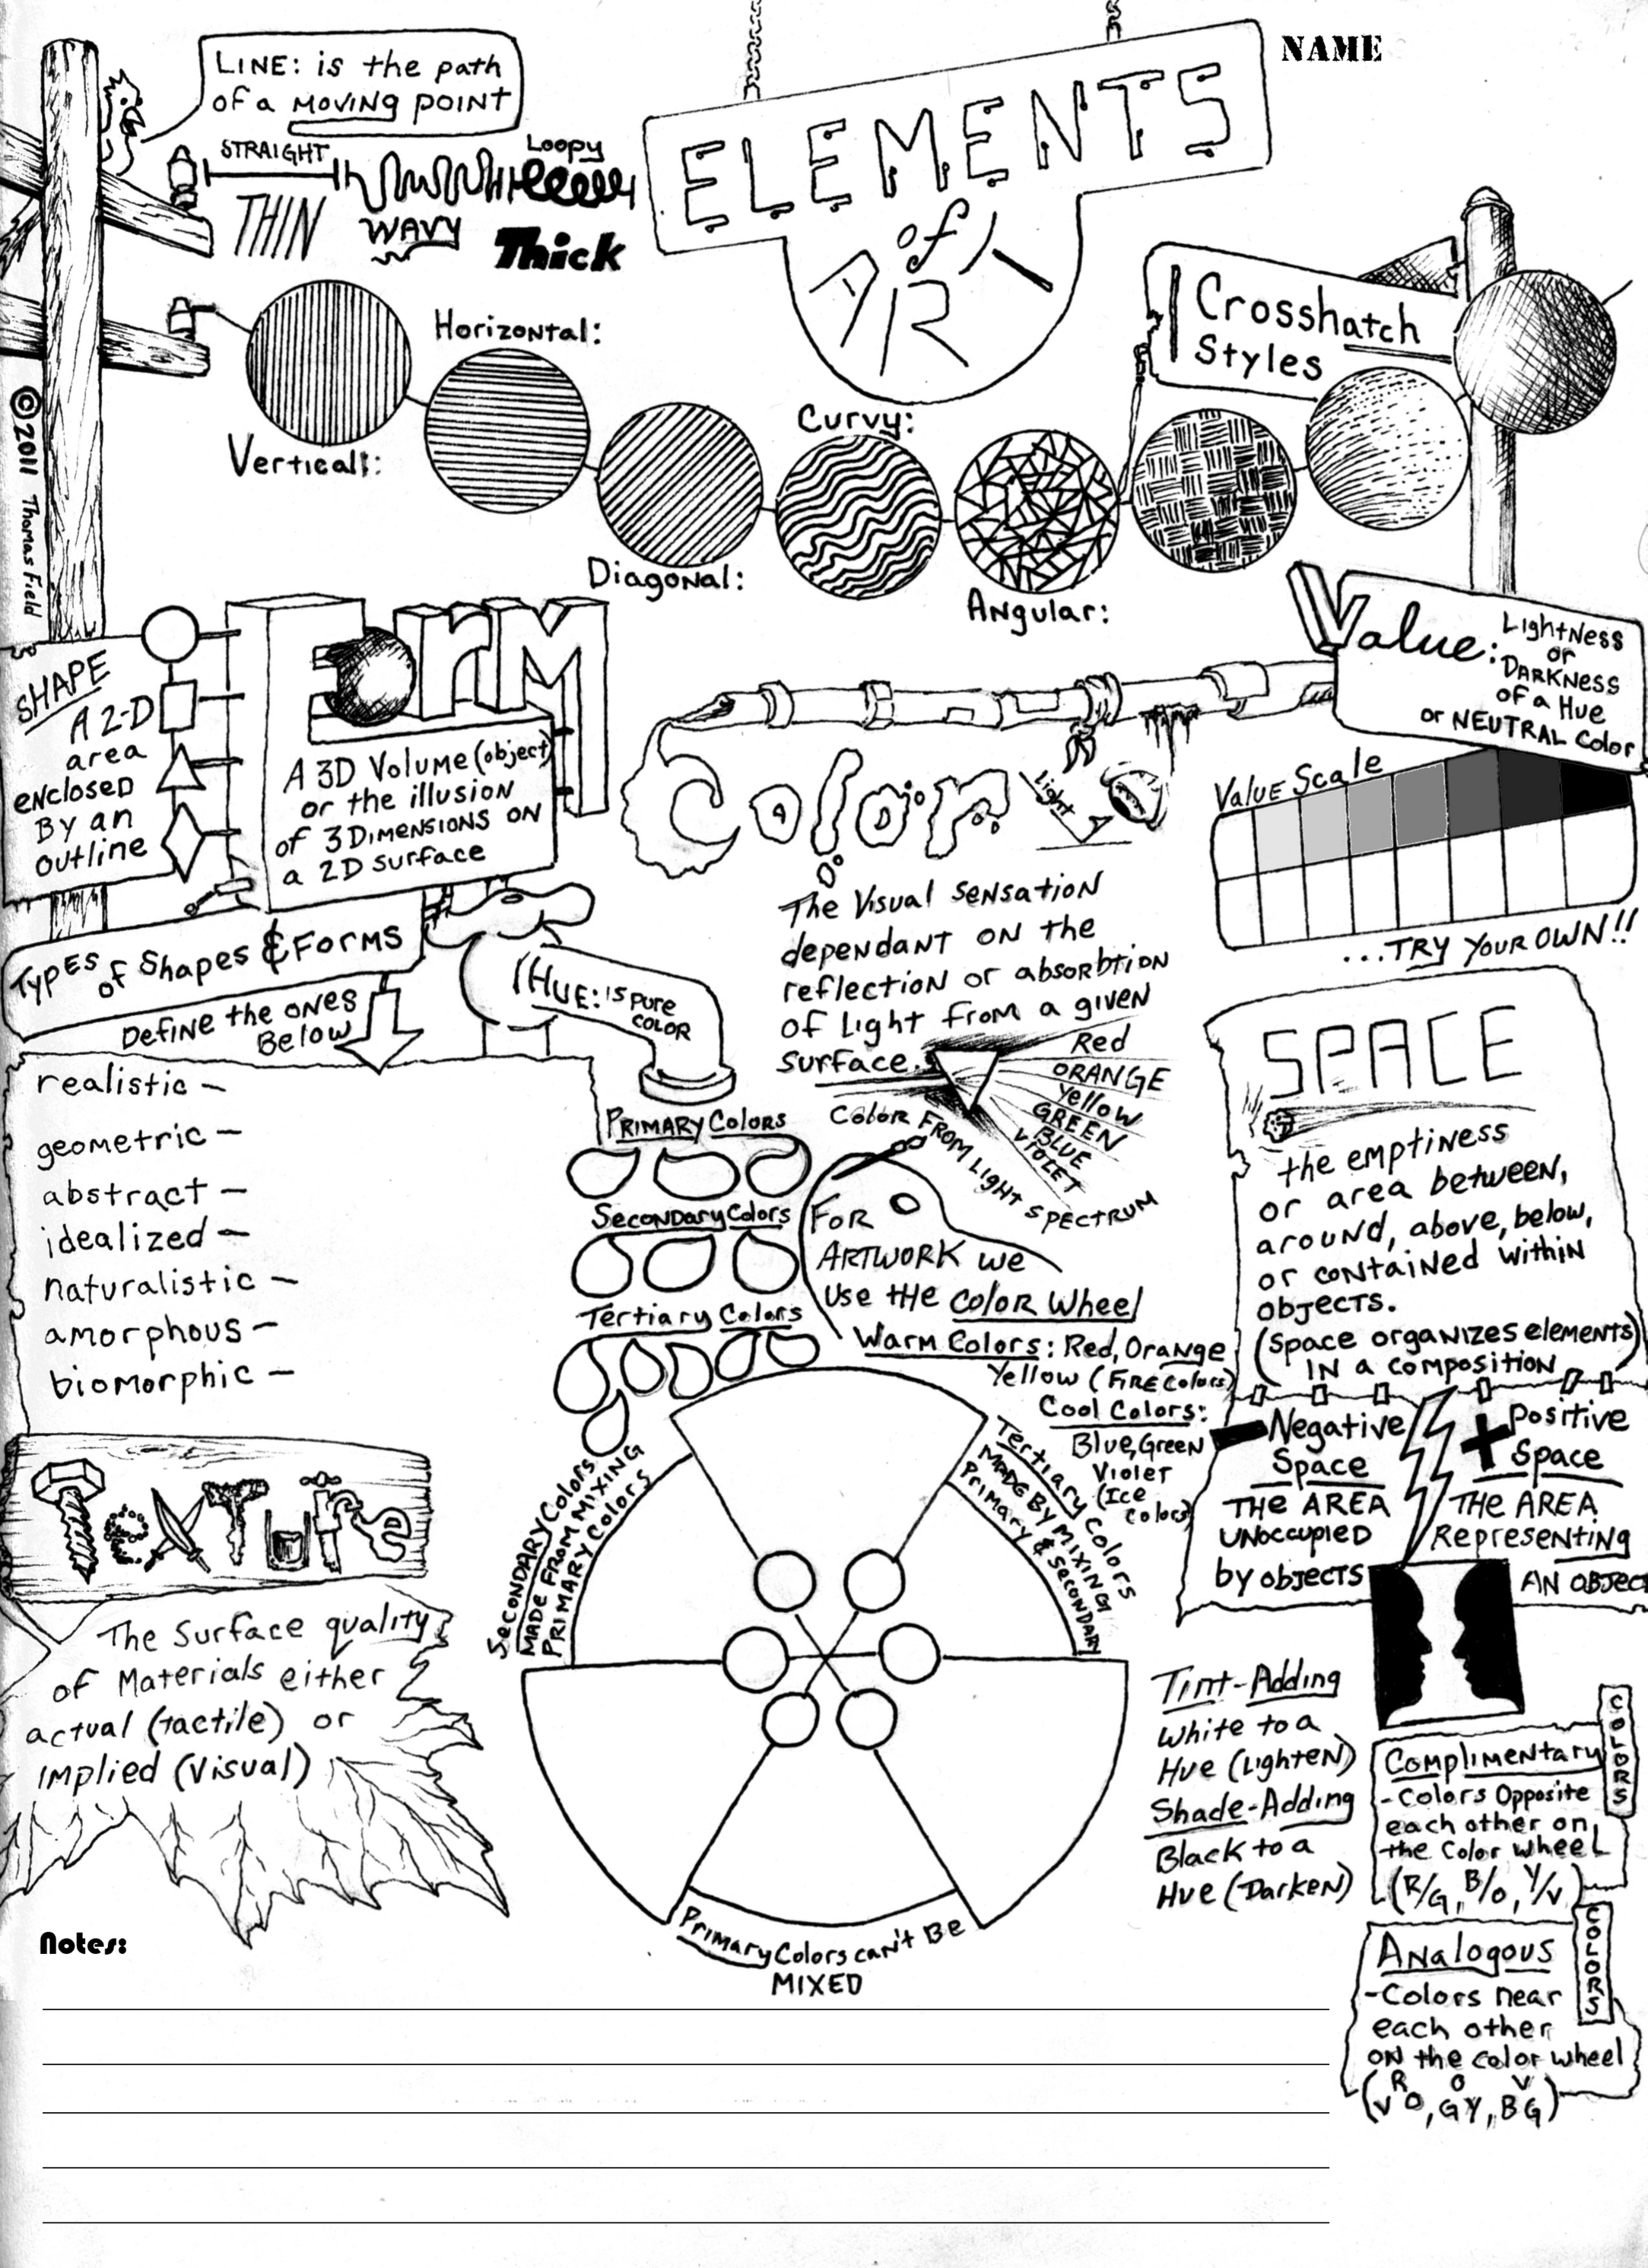 NAME
LINE: is the path
of a MOVING POINT
STRAIGHT
Loopy
THIN
WAVY
Thick
ELEMENTS
of
ART
Crosshatch
Styles
Horizontal:
Verticall:
Curvy:
Diagonal:
Angular:
©2011 Thomas Field
SHAPE
A 2-D
area
enclosed
By an
outline
Form
A 3D Volume (object)
or the illusion
of 3Dimensions on
a 2D surface
Value:
Lightness
or
Darkness
of a Hue
or NEUTRAL Color
Value Scale
...TRY YOUR OWN!!
Color:
Light
The Visual sensation
dependant on the
reflection or absorbtion
of Light from a given
surface.
Red
ORANGE
Yellow
GREEN
BLUE
VIOLET
Color From Light Spectrum
Types of Shapes & Forms
Define the ones
Below
realistic –
geometric –
abstract –
idealized –
naturalistic –
amorphous –
biomorphic –
HUE: is pure
COLOR
Primary Colors
Secondary Colors
Tertiary Colors
FOR
ARTWORK we
use the Color Wheel
Warm Colors: Red, Orange
Yellow (Fire Colors)
Cool Colors:
Blue, Green
Violet
(Ice
Colors)
SPACE
the emptiness
or area between,
around, above, below,
or contained within
objects.
(Space organizes elements)
IN a composition
Negative
Space
THE AREA
unoccupied
by objects
Positive
Space
THE AREA
Representing
AN OBJEC
Texture
The Surface quality
of Materials either
actual (tactile) or
implied (visual)
Secondary Colors
MADE FROM MIXING
PRIMARY Colors
Tertiary Colors
MADE BY MIXING
Primary & Secondary
Primary Colors can't Be
MIXED
Tint-Adding
White to a
Hue (Lighten)
Shade-Adding
Black to a
Hue (Darken)
COLORS
Complimentary
- Colors Opposite
each other on
the Color Wheel
(R/G, B/O, Y/V)
COLORS
Analogous
- Colors near
each other
on the color wheel
R O V
(V O, G Y, B G)
Notes: